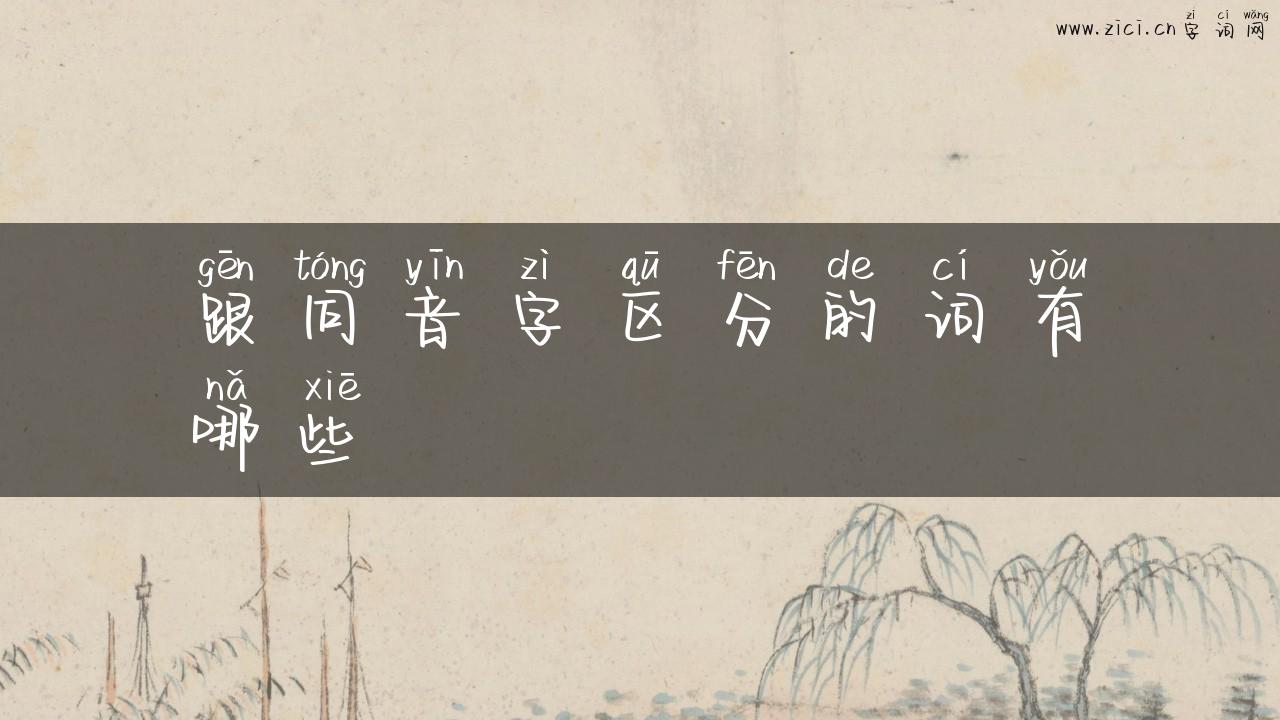 zì cí wǎng
www.zici.cn 字词网
gēn tóng yīn zì qū fēn de cí yǒu
跟同音字区分的词有
nǎ xiē
哪些